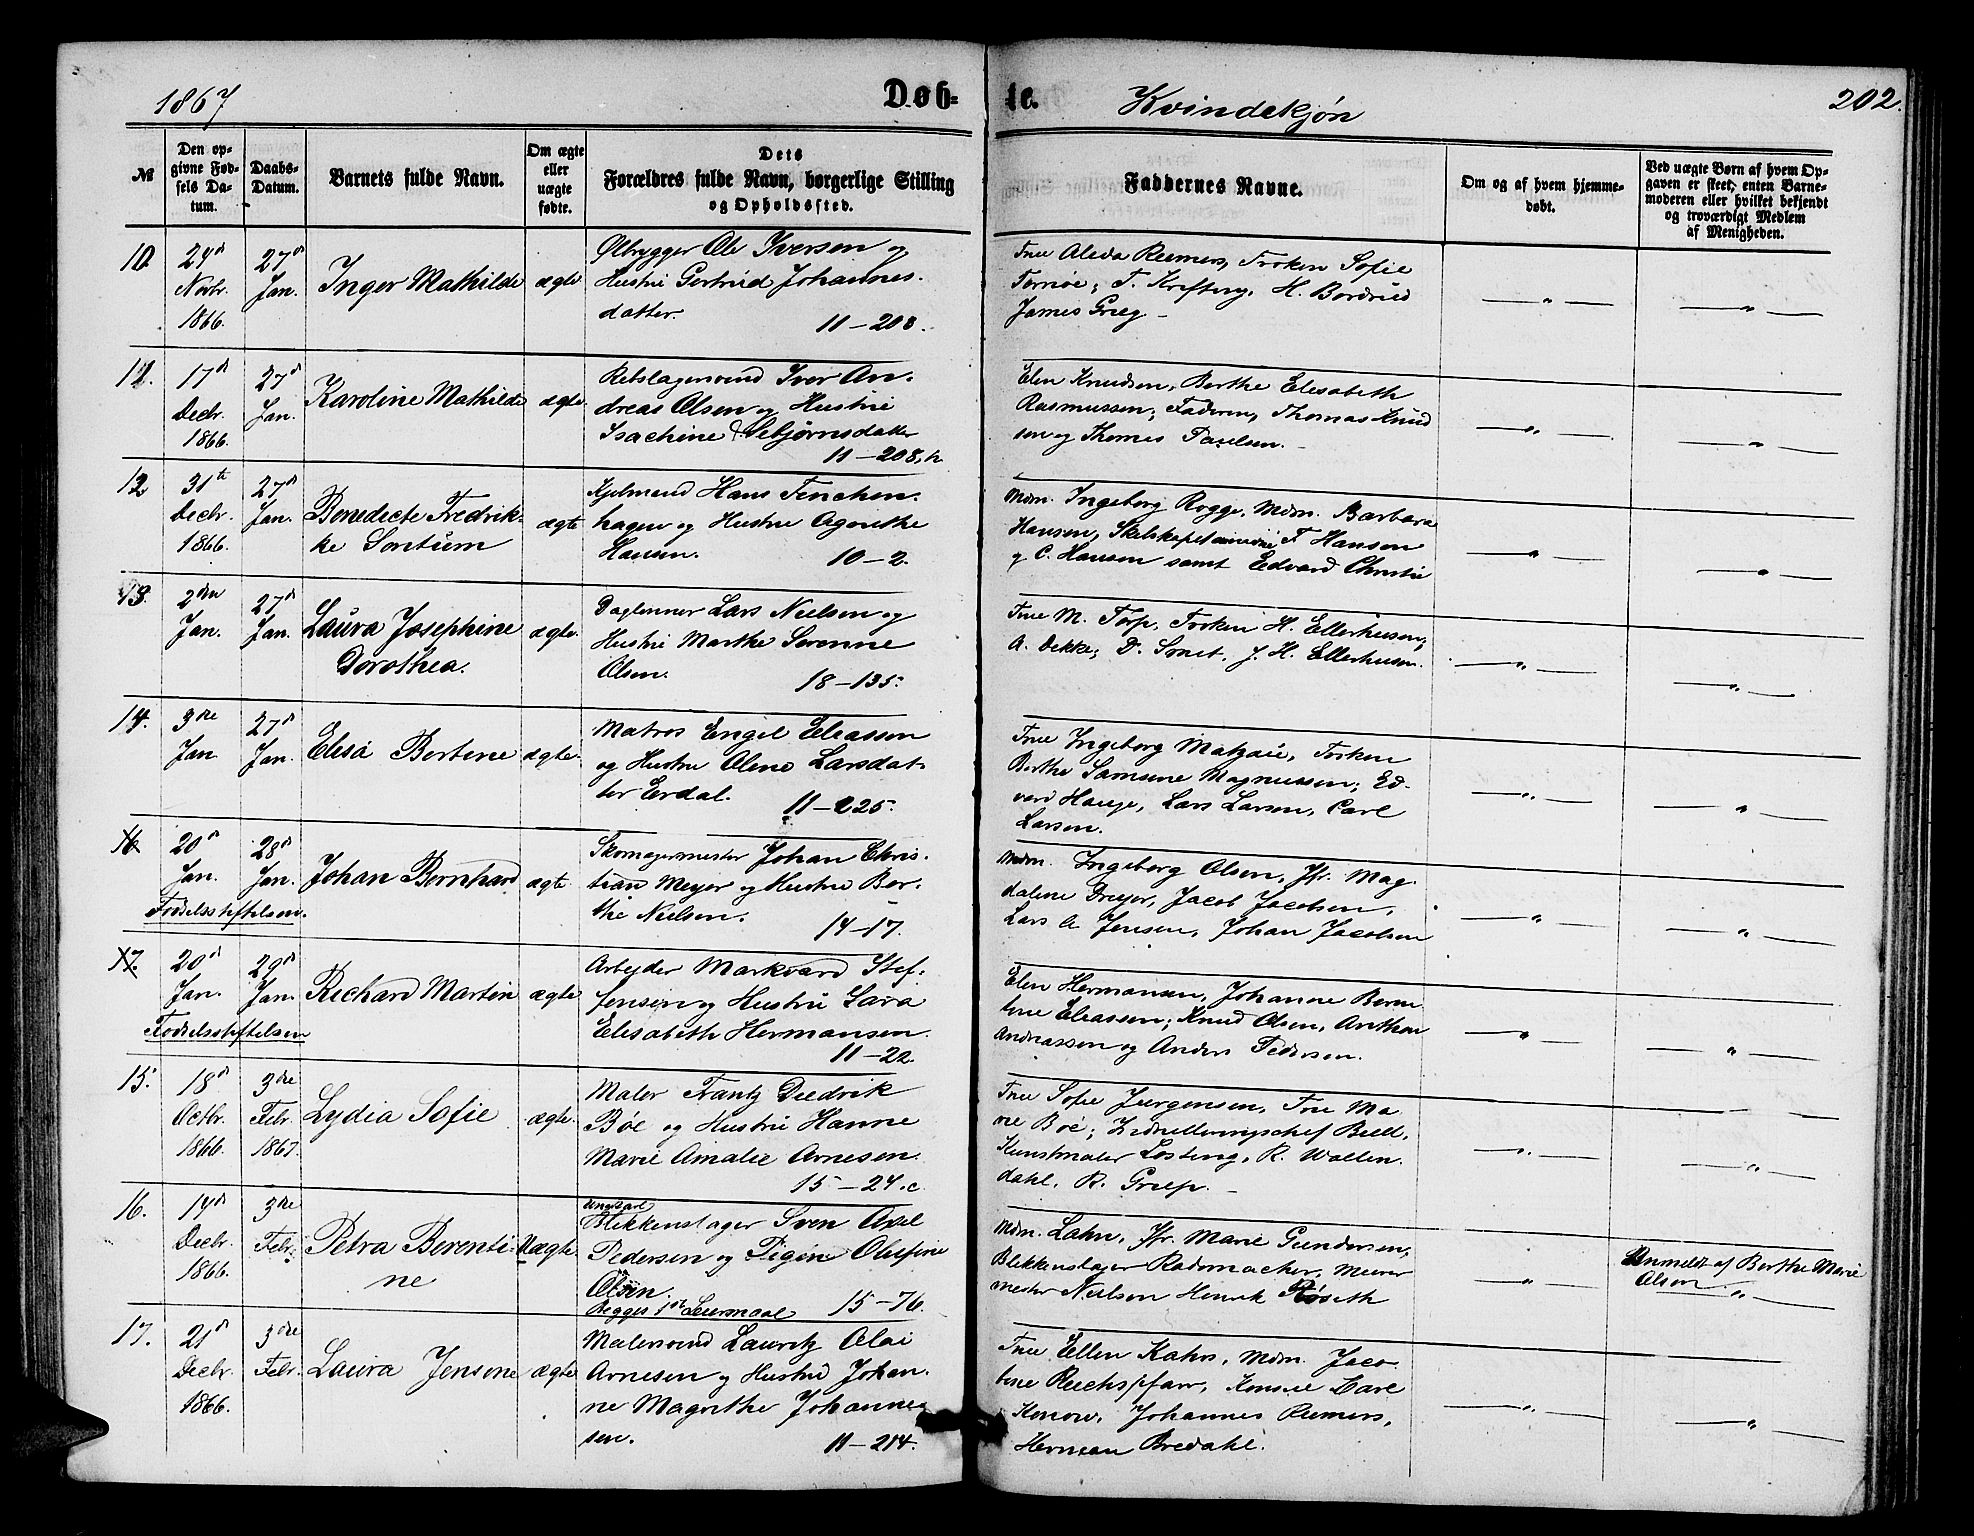 1867
Døb-
te.
Kvindekjøn
202.
№
Den op-
givne Fød-
sels Da-
tum.
Daabs-
Datum.
Barnets fulde Navn.
Om ægte
eller
uægte
fødte.
Dets
Forældres fulde Navn, borgerlige Stilling
og Opholdssted.
Faddernes Navne.
Om og af hvem hjemme-
døbt.
Ved uægte Børn af hvem Op-
gaven er skeet, enten Barne-
moderen eller hvilket bekjendt
og troværdigt Medlem
af Menigheden.
10.
Novbr.
1866.
27d
Jan.
Inger Mathilde
ægte
Ølbrygger Ole Iversen og
Hustru Gertrud Johannes-
datter.
11 – 208.
Frue Aleda Reimers, Frøken Sofie
James Grieg –
11.
17d
Decbr.
1866.
27d
Jan.
Karoline Mathilde
ægte.
Rebslagersvend Iver An-
dreas Olsen og Hustru
Isachine Sebjørnsdatter
11 – 208, h
Elen Knudsen, Berthe Elisabeth
Rasmussen; Faderen, Thomas Knud
sen og Thomas Paulsen. –
12
31te
Decbr.
1866.
27d
Jan.
Benedicte Fredrik-
ke Sontum
ægte
Hans
hagen og Hustru Agnethe
Hansen.
10 – 2.
Mdm. Ingeborg Rogge, Mdm. Barbara
Hansen, F Hansen
og C. Hansen samt Edvard Christie
13.
2den
Jan.
27d
Jan.
Laura Josephine
Dorothea.
ægte.
Daglønner Lars Nielsen og
Hustru Marthe Serenne
Olsen.
18 – 135.
Frue M. Torp, Frøken H. Ellerhusen,
A. Dekke; D. J. H. Ellerhusen.
14.
3die
Jan
27d
Jan.
Elisa Bertine
ægte.
Matros Engel Eliassen
og Hustru Oline Larsdat-
ter Erdal.
11 – 225.
Frue Ingeborg Frøken
Berthe Samsine Magnussen; Ed-
vard Hauge, Lars Larsen, Carl
Larsen.
16
20d
Jan.
28d
Jan.
Johan Bernhard
ægte
Fødselsstiftelsen.
Skomagermester Johan Chris-
tian Meyer og Hustru Ber-
the Nielsen.
14 – 17.
Mdm. Ingeborg Olsen, Jfr. Mag-
dalene Dreyer, Jacob Jacobsen,
Lars A Jensen, Johan Jacobsen
17.
20d
Jan.
29d
Jan.
Richard Martin
ægte
Fødselsstiftelsen
Arbeider Markvard Stef-
fensen og Hustru Sara
Elisabeth Hermansen.
11 – 22
Elen Hermansen, Johanne Bern
tine Eliassen; Knud Olsen, Anthon
Andreassen og Anders Pedersen.
15.
18d
Octbr.
1866.
3die
Febr.
1867.
Lydia Sofie
ægte.
Maler Frantz Diedrik
Bøe og Hustru Hanne
Marie Amalie Arnesen.
15 – 24. c.
Frue Sofie Jurgensen, Frue Ma-
rie Bøe; Bull,
Kunstmaler Losting, R. Wallen-
dahl, R. Greep. –
16.
19d
Decbr.
1866.
3die
Febr.
Petra Berenti-
ne
Uægte
Ungkarl
Blikkenslager Sven Axel
Pedersen og Pigen Olufine
Olsen.
Begges 1ste Leiermaal
15 – 76.
Mdm. Lahn, Jfr. Marie Gundersen,
Blikkenslager Radsmacher, Murer
mester Nielsen Henrik Røseth
Anmeldt af Berthe Marie
Olsen
17.
21d
Decbr.
1866.
3die
Febr.
Laura Jensine
ægte
Malersvend Lauritz Olai
Arnesen og Hustru Johan-
ne Magrethe Johanne-
sen.
11 – 214.
Frue Ellen Kahrs, Mdm. Jaco-
bine Reichspfarr, Konsul Carl
Konow, Johannes Reimers,
Herman Bredahl.